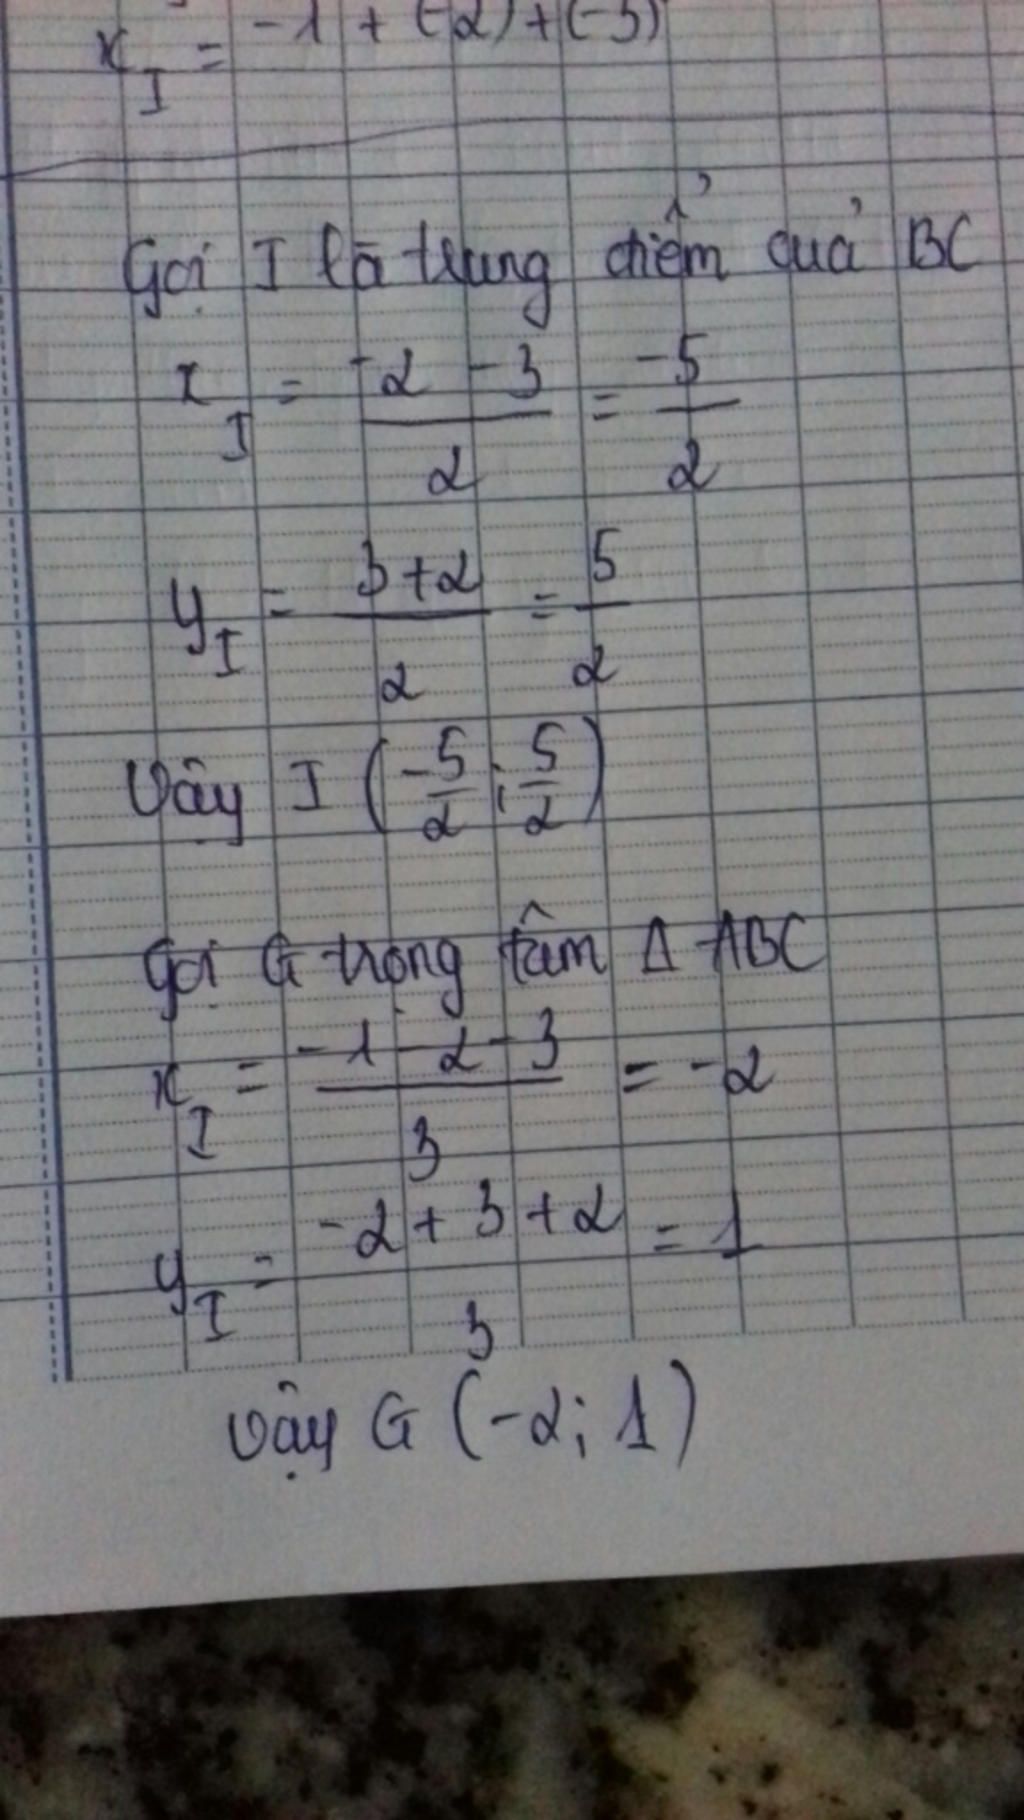 x_I = -1 + (-2) + (-3)
Gọi I là trung điểm cuả BC
x_I = \frac{-2 - 3}{2} = \frac{-5}{2}
y_I = \frac{3 + 2}{2} = \frac{5}{2}
Vậy I (\frac{-5}{2} ; \frac{5}{2})
Gọi G trọng tâm Δ ABC
x_I = \frac{-1 - 2 - 3}{3} = -2
y_I = \frac{-2 + 3 + 2}{3} = 1
Vậy G (-2; 1)